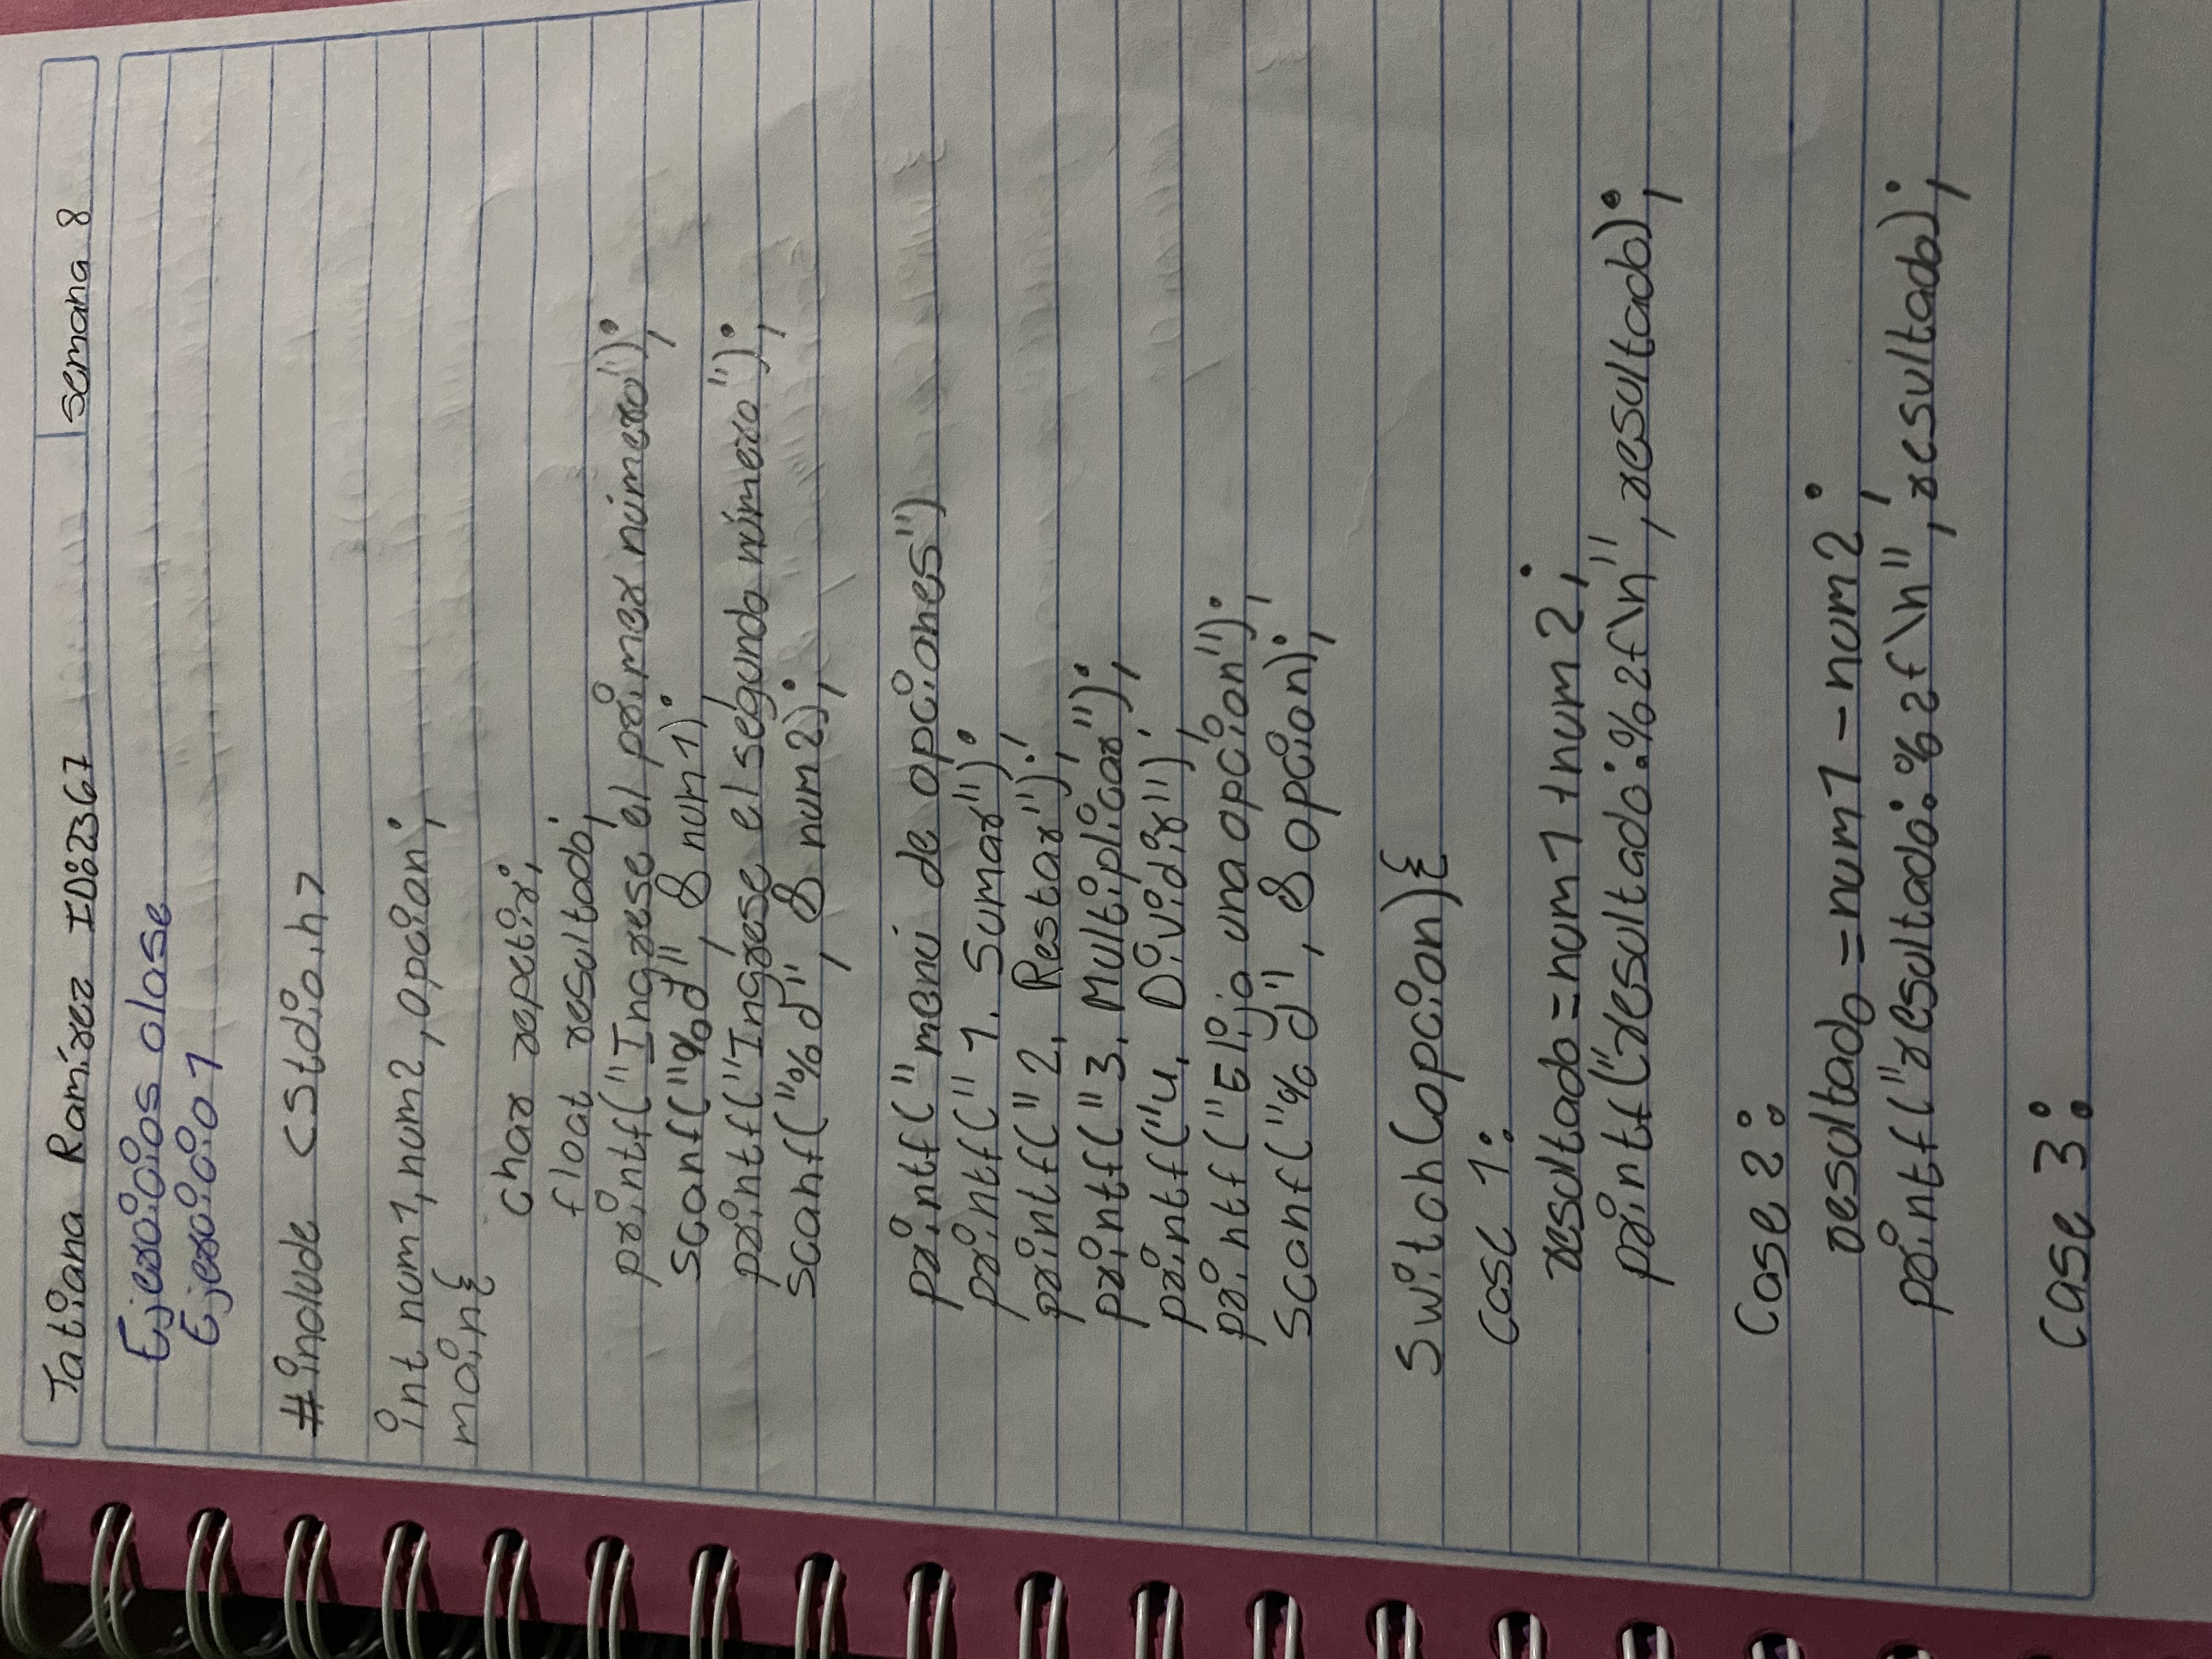 Tatiana Ramírez ID:82367
semana 8
Ejercicios clase
Ejercicio 1
#include <stdio.h>
int num1,num2,opcion;
main{
char repetir;
float resultado;
printf("Ingrese el primer número");
scanf("%d", & num1);
printf("Ingrese el segundo número");
scanf("%d", & num2);
printf("menú de opciones")
printf("1. Sumar");
printf("2. Restar");
printf("3. Multiplicar");
printf("4. Dividir");
printf("Elija una opcion");
scanf("%d", & opcion);
Switch(opcion){
case 1:
resultado=num1+num2;
printf("resultado:%2f\n",resultado);
Case 2:
resultado=num1-num2;
printf("resultado:%2f\n",resultado);
Case 3: